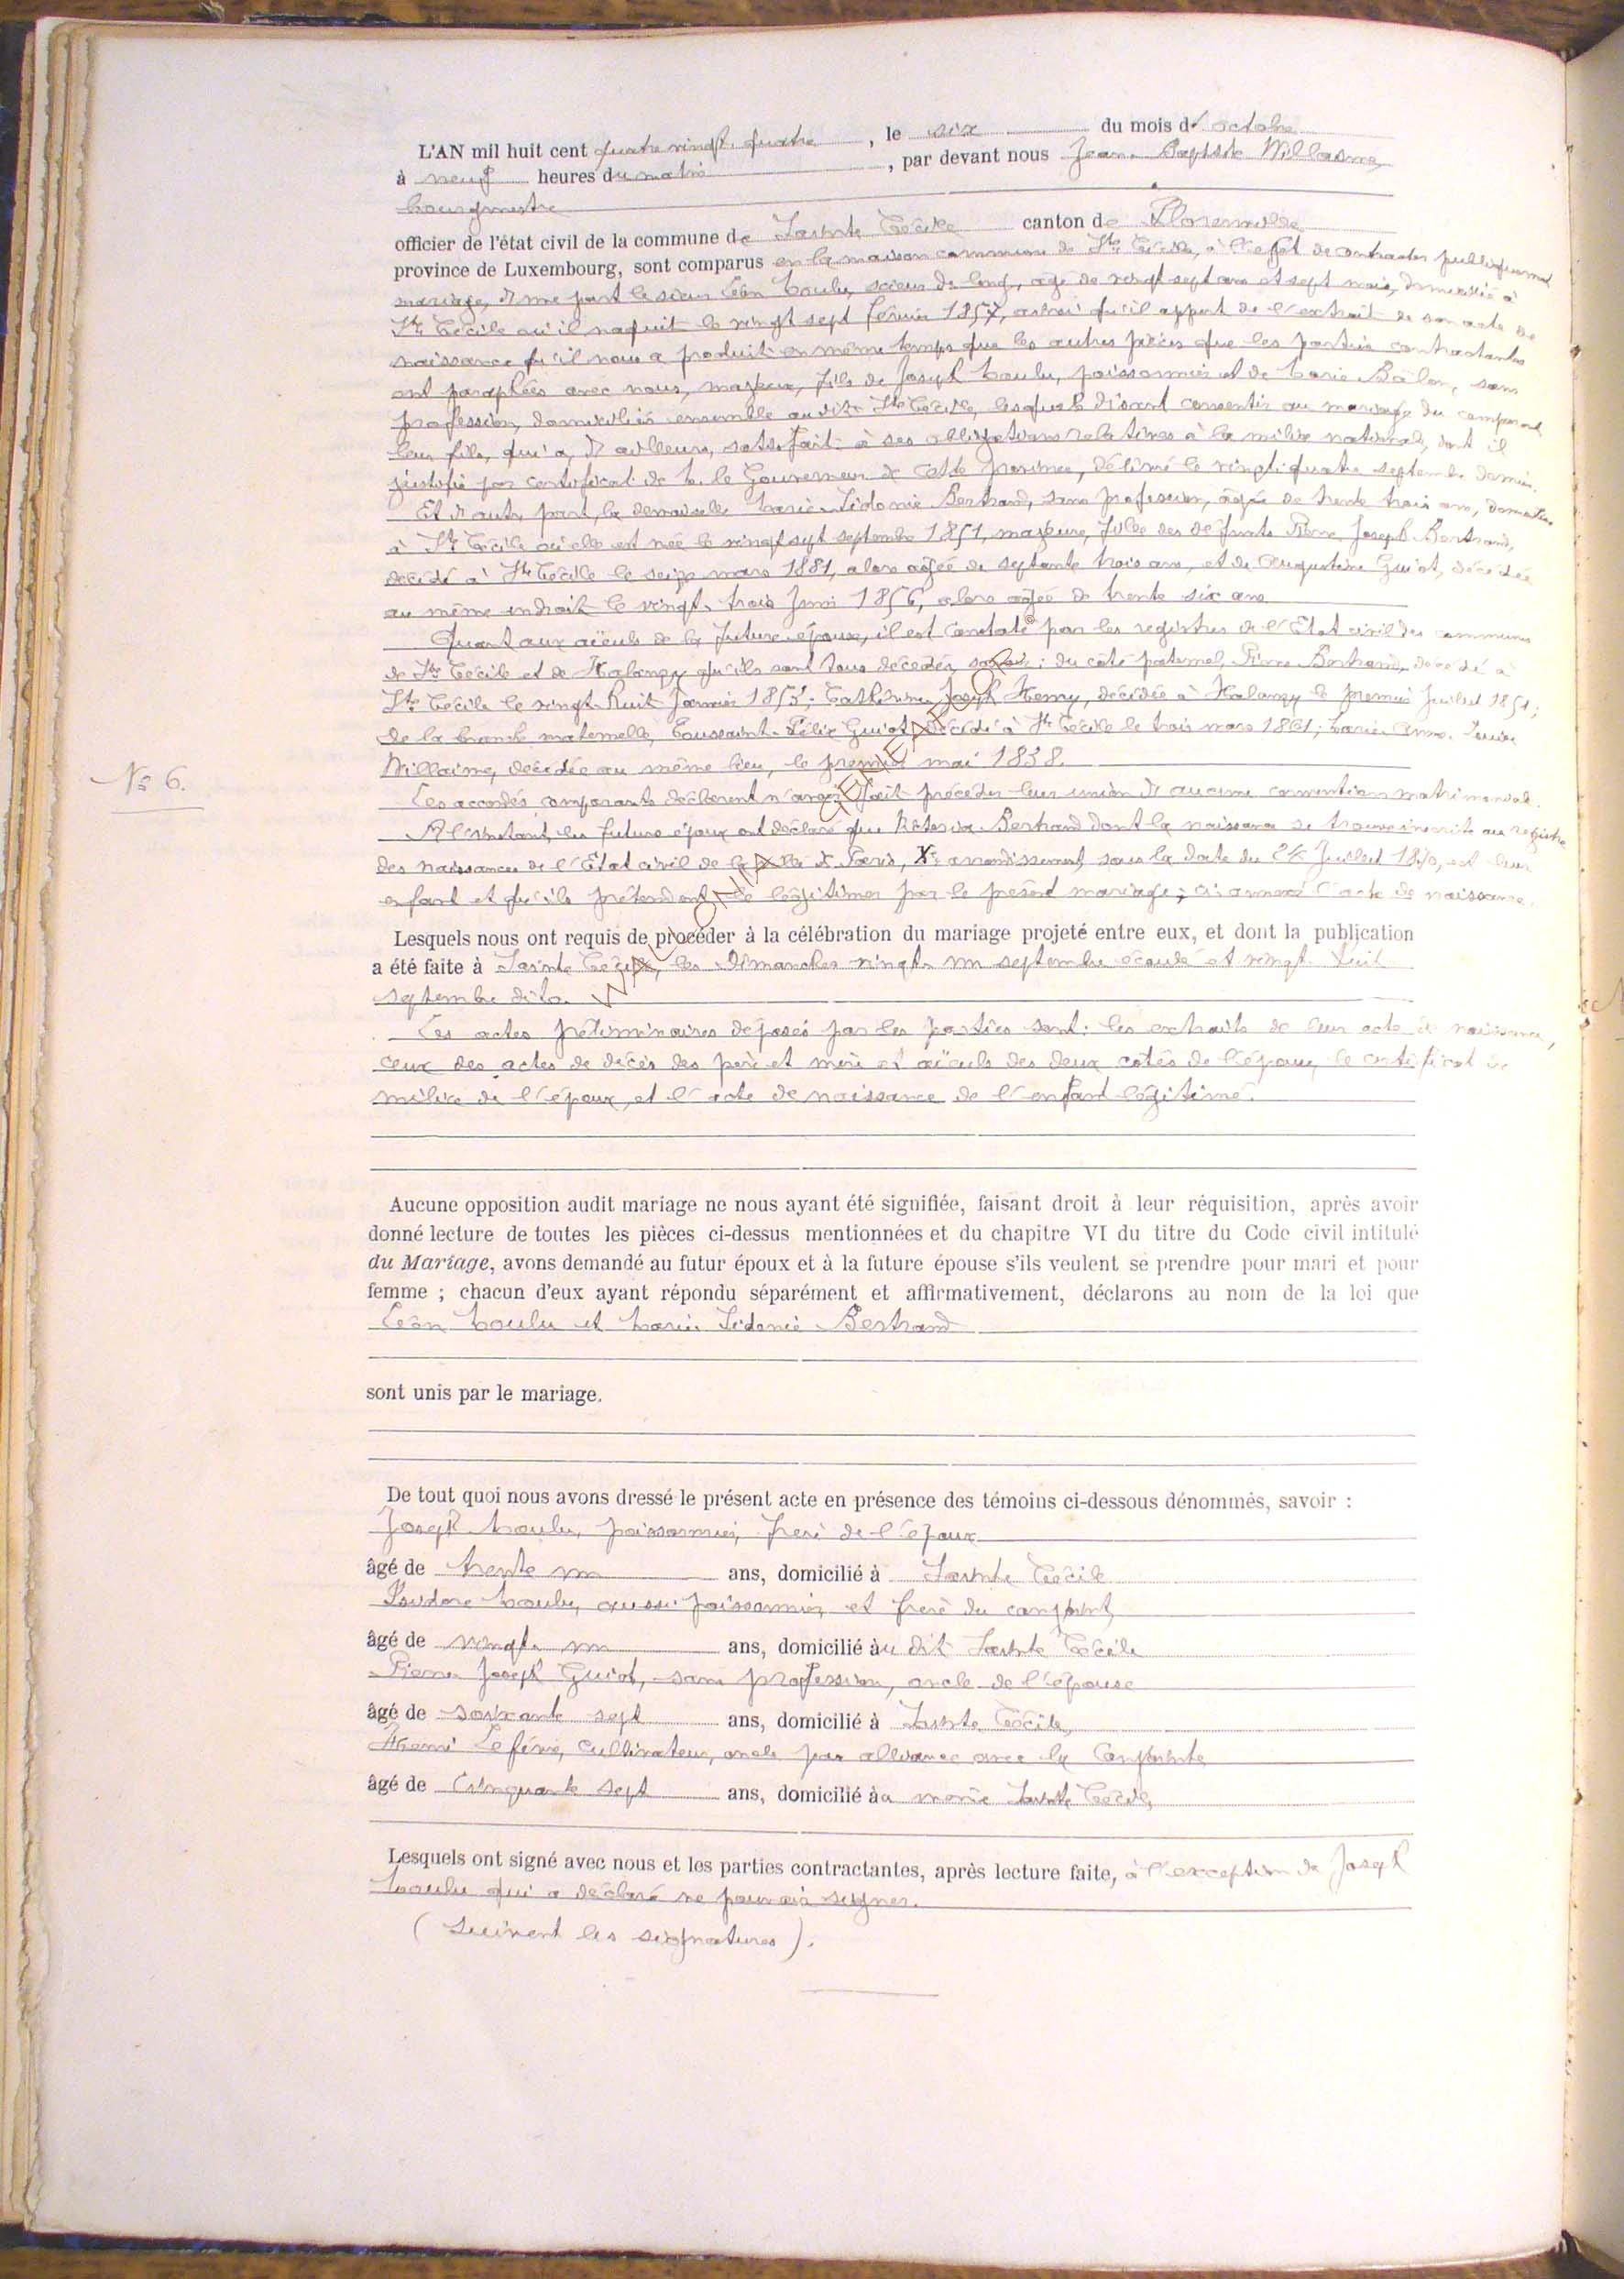 L'AN mil huit cent quatre vingt quatre, le six du mois d'octobre
à neuf heures du matin, par devant nous Jean Baptiste Willaime,
bourgmestre
officier de l'état civil de la commune de Sainte Cécile canton de Florenville
province de Luxembourg, sont comparus en la maison commune de Ste Cécile, à l'effet de contracter publiquement
mariage, d'une part le sieur Léon Moulu, scieur de long, âgé de vingt sept ans et sept mois, domicilié à
Ste Cécile où il naquit le vingt sept février 1857, ainsi qu'il appert de l'extrait de son acte de
naissance qu'il nous a produit en même temps que les autres pièces que les parties contractantes
ont paraphées avec nous, majeur, fils de Joseph Moulu, poissonnier et de Marie sans
profession, domiciliés ensemble au dit Ste Cécile, lesquels disent consentir au mariage du comparant
leur fils, qui a, d'ailleurs, satisfait à ses obligations relatives à la milice nationale, dont il
justifie par certificat de M. le Gouverneur de cette province, délivré le vingt quatre septembre dernier.
Et d'autre part, la demoiselle Marie Sidonie Bertrand, sans profession, âgée de trente trois ans, domiciliée
à Ste Cécile où elle est née le vingt sept septembre 1851, majeure, fille des défunts Pierre Joseph Bertrand,
décédé à Ste Cécile le seize mars 1881, alors âgée de septante trois ans, et de Augustine Guiot, décédée
au même endroit le vingt-trois Juin 1856, alors âgée de trente six ans
Quant aux aïeuls de la future épouse, il est constaté par les registres de l'Etat civil des communes
de Ste Cécile et de Halanzy qu'ils sont tous décédés, savoir: du côté paternel, Pierre Bertrand, décédé à
Ste Cécile le vingt-huit Janvier 1853; Catherine Joseph Henry, décédée à Halanzy le premier Juillet 1851;
de la branche maternelle, Toussaint-Félix Guiot décédé à Ste Cécile le trois mars 1861; Marie Anne Louise
Willaime, décédée au même lieu, le premier mai 1838.
Nº 6.
Les accordés comparants déclarent n'avoir fait précéder leur union d'aucune convention matrimoniale.
A l'instant, les futurs époux ont déclaré que Bertrand dont la naissance se trouve inscrite au registre
des naissances de l'Etat civil de la ville de Paris, Xe arrondissement, sous la date du Juillet est leur
enfant et qu'ils prétendent le légitimer par le présent mariage; ci annexé l'acte de naissance.
Lesquels nous ont requis de procéder à la célébration du mariage projeté entre eux, et dont la publication
a été faite à Sainte Cécile, les dimanches vingt un septembre écoulé et vingt huit
septembre dito.
Les actes préliminaires déposés par les parties sont: les extraits de leur acte de naissance,
ceux des actes de décès des père et mère et aïeuls des deux côtés de l'épouse, le certificat de
milice de l'époux, et l'acte de naissance de l'enfant légitimé.
Aucune opposition audit mariage ne nous ayant été signifiée, faisant droit à leur réquisition, après avoir
donné lecture de toutes les pièces ci-dessus mentionnées et du chapitre VI du titre du Code civil intitulé
du Mariage, avons demandé au futur époux et à la future épouse s'ils veulent se prendre pour mari et pour
femme ; chacun d'eux ayant répondu séparément et affirmativement, déclarons au nom de la loi que
Léon Moulu et Marie Sidonie Bertrand
sont unis par le mariage.
De tout quoi nous avons dressé le présent acte en présence des témoins ci-dessous dénommés, savoir :
Joseph Moulu, poissonnier, frère de l'époux
âgé de trente un ans, domicilié à Sainte Cécile
Isidore Moulu, aussi poissonnier, et frère du conjoint,
âgé de vingt un ans, domicilié àu dit Sainte Cécile
Pierre Joseph Guiot, sans profession, oncle de l'épouse
âgé de soixante sept ans, domicilié à Sainte Cécile,
Henri Lefèvre, cultivateur, oncle par alliance avec la conjointe
âgé de cinquante sept ans, domicilié àu même Sainte Cécile,
Lesquels ont signé avec nous et les parties contractantes, après lecture faite, à l'exception de Joseph
Moulu qui a déclaré ne pouvoir signer.
(Suivent les signatures).